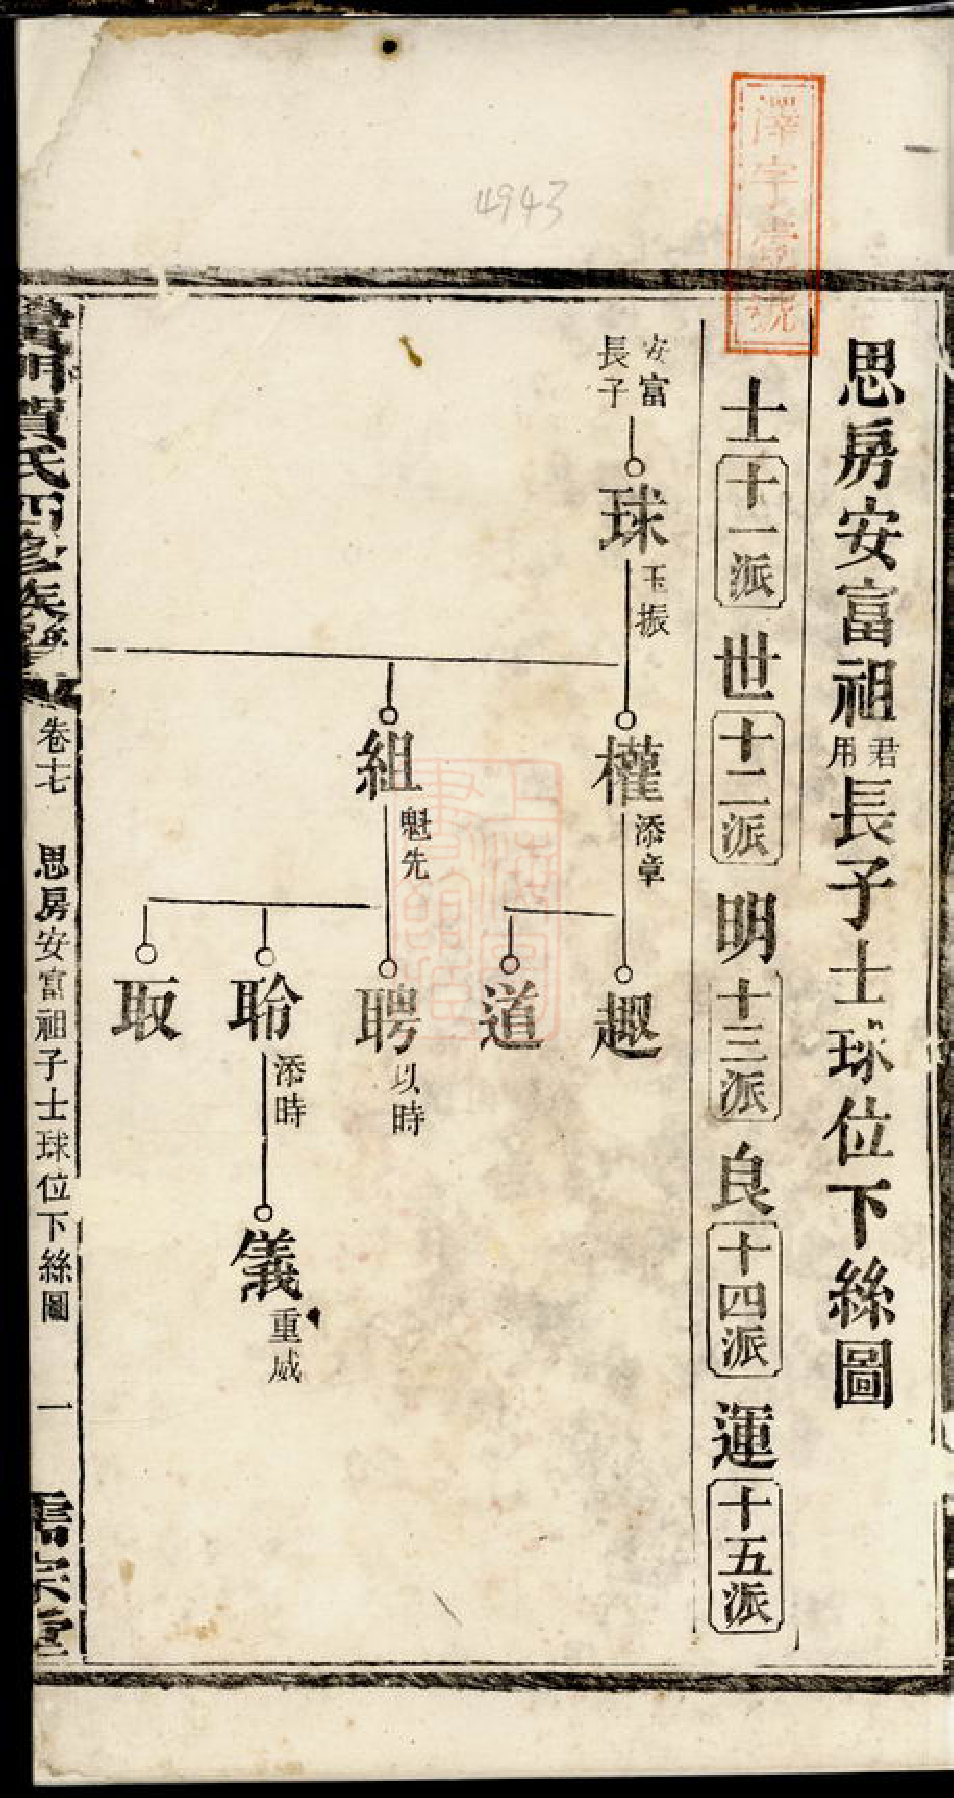 4943
思房安富祖君用長子士球位下絲圖
士十一派世十二派明十三派良十四派運十五派
安富
長子
球玉振
權添章
組魁先
趣
道
聘以時
聆添時
取
儀重威
卷七 思房安富祖子士球位下絲圖 一